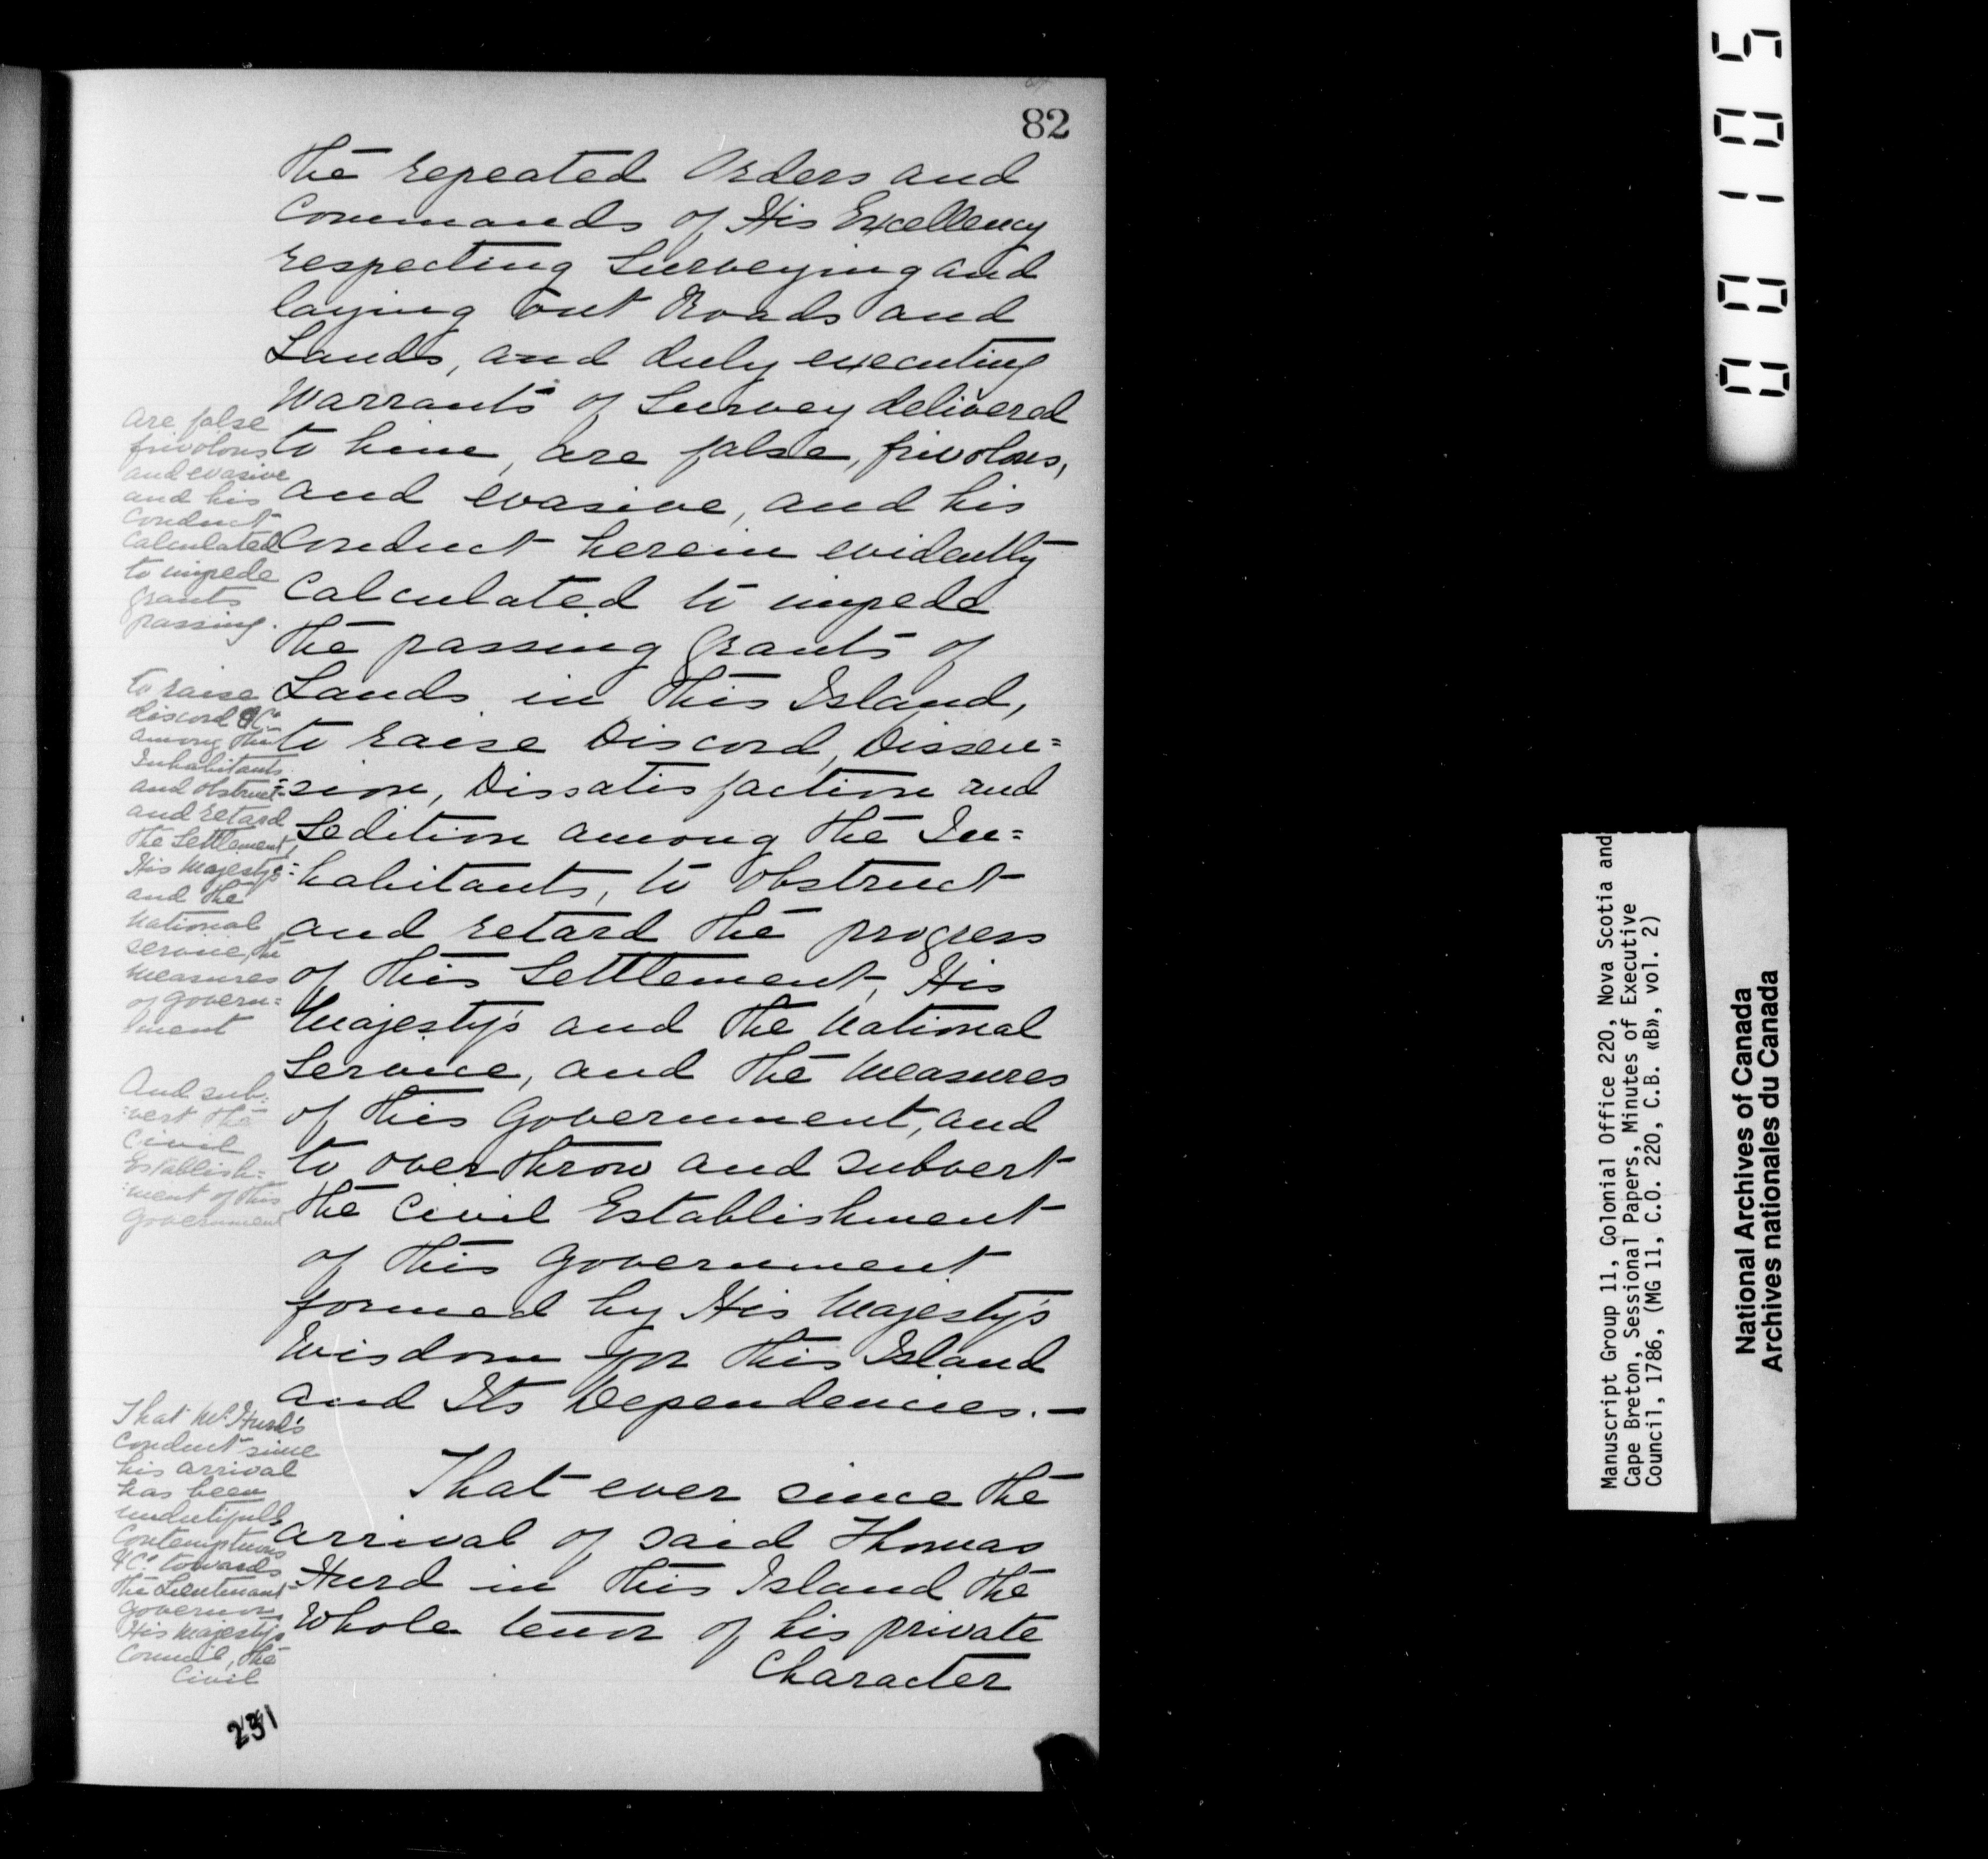 82
the repeated Orders and
Commands of His Excellency
respecting Surveying and
laying out Roads and
Lands, and duly executing
Warrants of Survey delivered
to him, are false, frivolous,
and evasive, and his
Conduct herein evidently
Calculated to impede
the passing Grants of
Lands in this Island,
to raise Discord, Dissen=
=sion, Dissatisfaction and
Sedition among the In=
=habitants, to obstruct
and retard the progress
of this Settlement, His
Majesty's and the National
Service, and the Measures
of this Government, and
to overthrow and subvert
the Civil Establishment
of this Government
formed by His Majesty's
Wisdom for this Island
and Its Dependencies.—
That ever since the
arrival of said Thomas
Hurd in this Island the
Whole tenor of his private
Character
are false
frivolous
and evasive
and his
conduct
calculated
to impede
grants
passing.
to raise
discord &C.
among the
Inhabitants
and obstruct
and retard
the Settlement,
His Majesty's
and the
National
service, the
measures
of govern=
ment
And sub=
=vert the
Civil
Establish=
=ment of this
Government
That Mr. Hurd's
conduct since
his arrival
has been
undutifull
contemptuous
&C. towards
the Lieutenant
Governor
His Majesty's
Council, the
Civil
231
001105
Manuscript Group 11, Colonial Office 220, Nova Scotia and
Cape Breton, Sessional Papers, Minutes of Executive
Council, 1786, (MG 11, C.O. 220, C.B. «B», vol. 2)
National Archives of Canada
Archives nationales du Canada